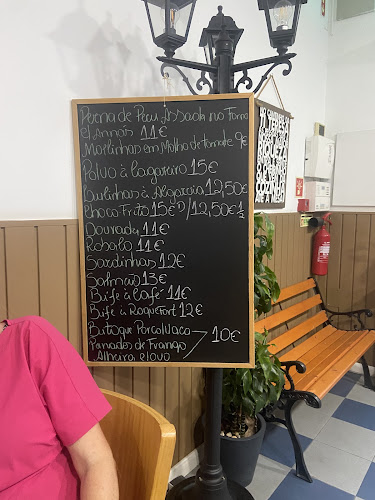 Perna de Peru Assada no Forno
c/ Arroz 11€
Marlinhas em Molho de tomate 9€
Polvo à lagareiro 15€
Lulinhas à Algarvia 12,50€
Choco Frito 15€ 1/ 12,50€ 1/2
Dourada 11€
Robalo 11€
Sardinhas 12€
Salmão 13€
Bife à Café 11€
Bife à Roquefort 12€
Bitoque Porco/Vaca
Panados de Frango 10€
Alheira c/ovo